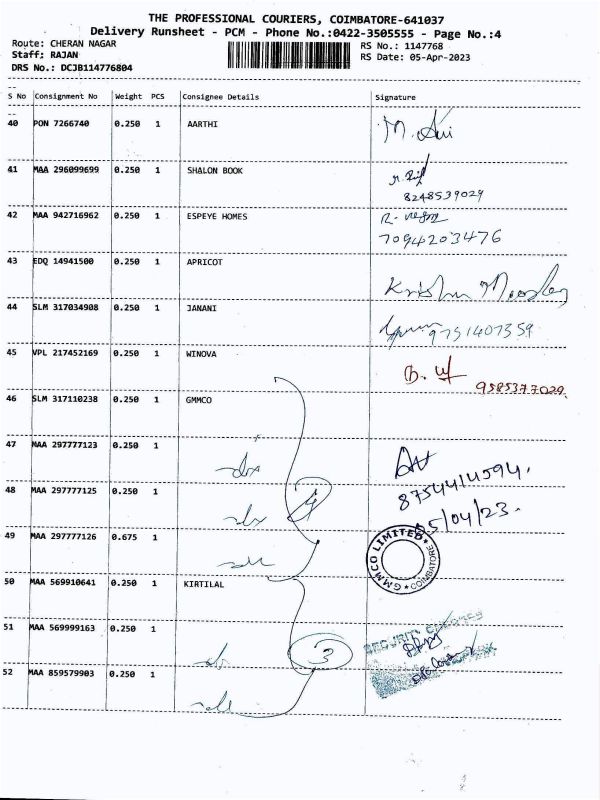 THE PROFESSIONAL COURIERS, COIMBATORE-641037
Delivery Runsheet - PCM - Phone No.:0422-3505555 - Page No.:4
Route: CHERAN NAGAR RS No.: 1147768
Staff: RAJAN RS Date: 05-Apr-2023
DRS No.: DCJB114776804
S No Consignment No Weight PCS Consignee Details Signature
40 PON 7266740 0.250 1 AARTHI
41 MAA 296099699 0.250 1 SHALON BOOK
8248539029
42 MAA 942716962 0.250 1 ESPEYE HOMES
7094203476
43 EDQ 14941500 0.250 1 APRICOT
44 SLM 317034908 0.250 1 JANANI
9751407359
45 VPL 217452169 0.250 1 WINOVA
9585377029
46 SLM 317110238 0.250 1 GMMCO
47 MAA 297777123 0.250 1
8754414594.
48 MAA 297777125 0.250 1 4
05/04/23.
49 MAA 297777126 0.675 1
GMMCO LIMITED * COIMBATORE *
50 MAA 569910641 0.250 1 KIRTILAL
51 MAA 569999163 0.250 1 3
SECURITY CHECKED
52 MAA 859579903 0.250 1